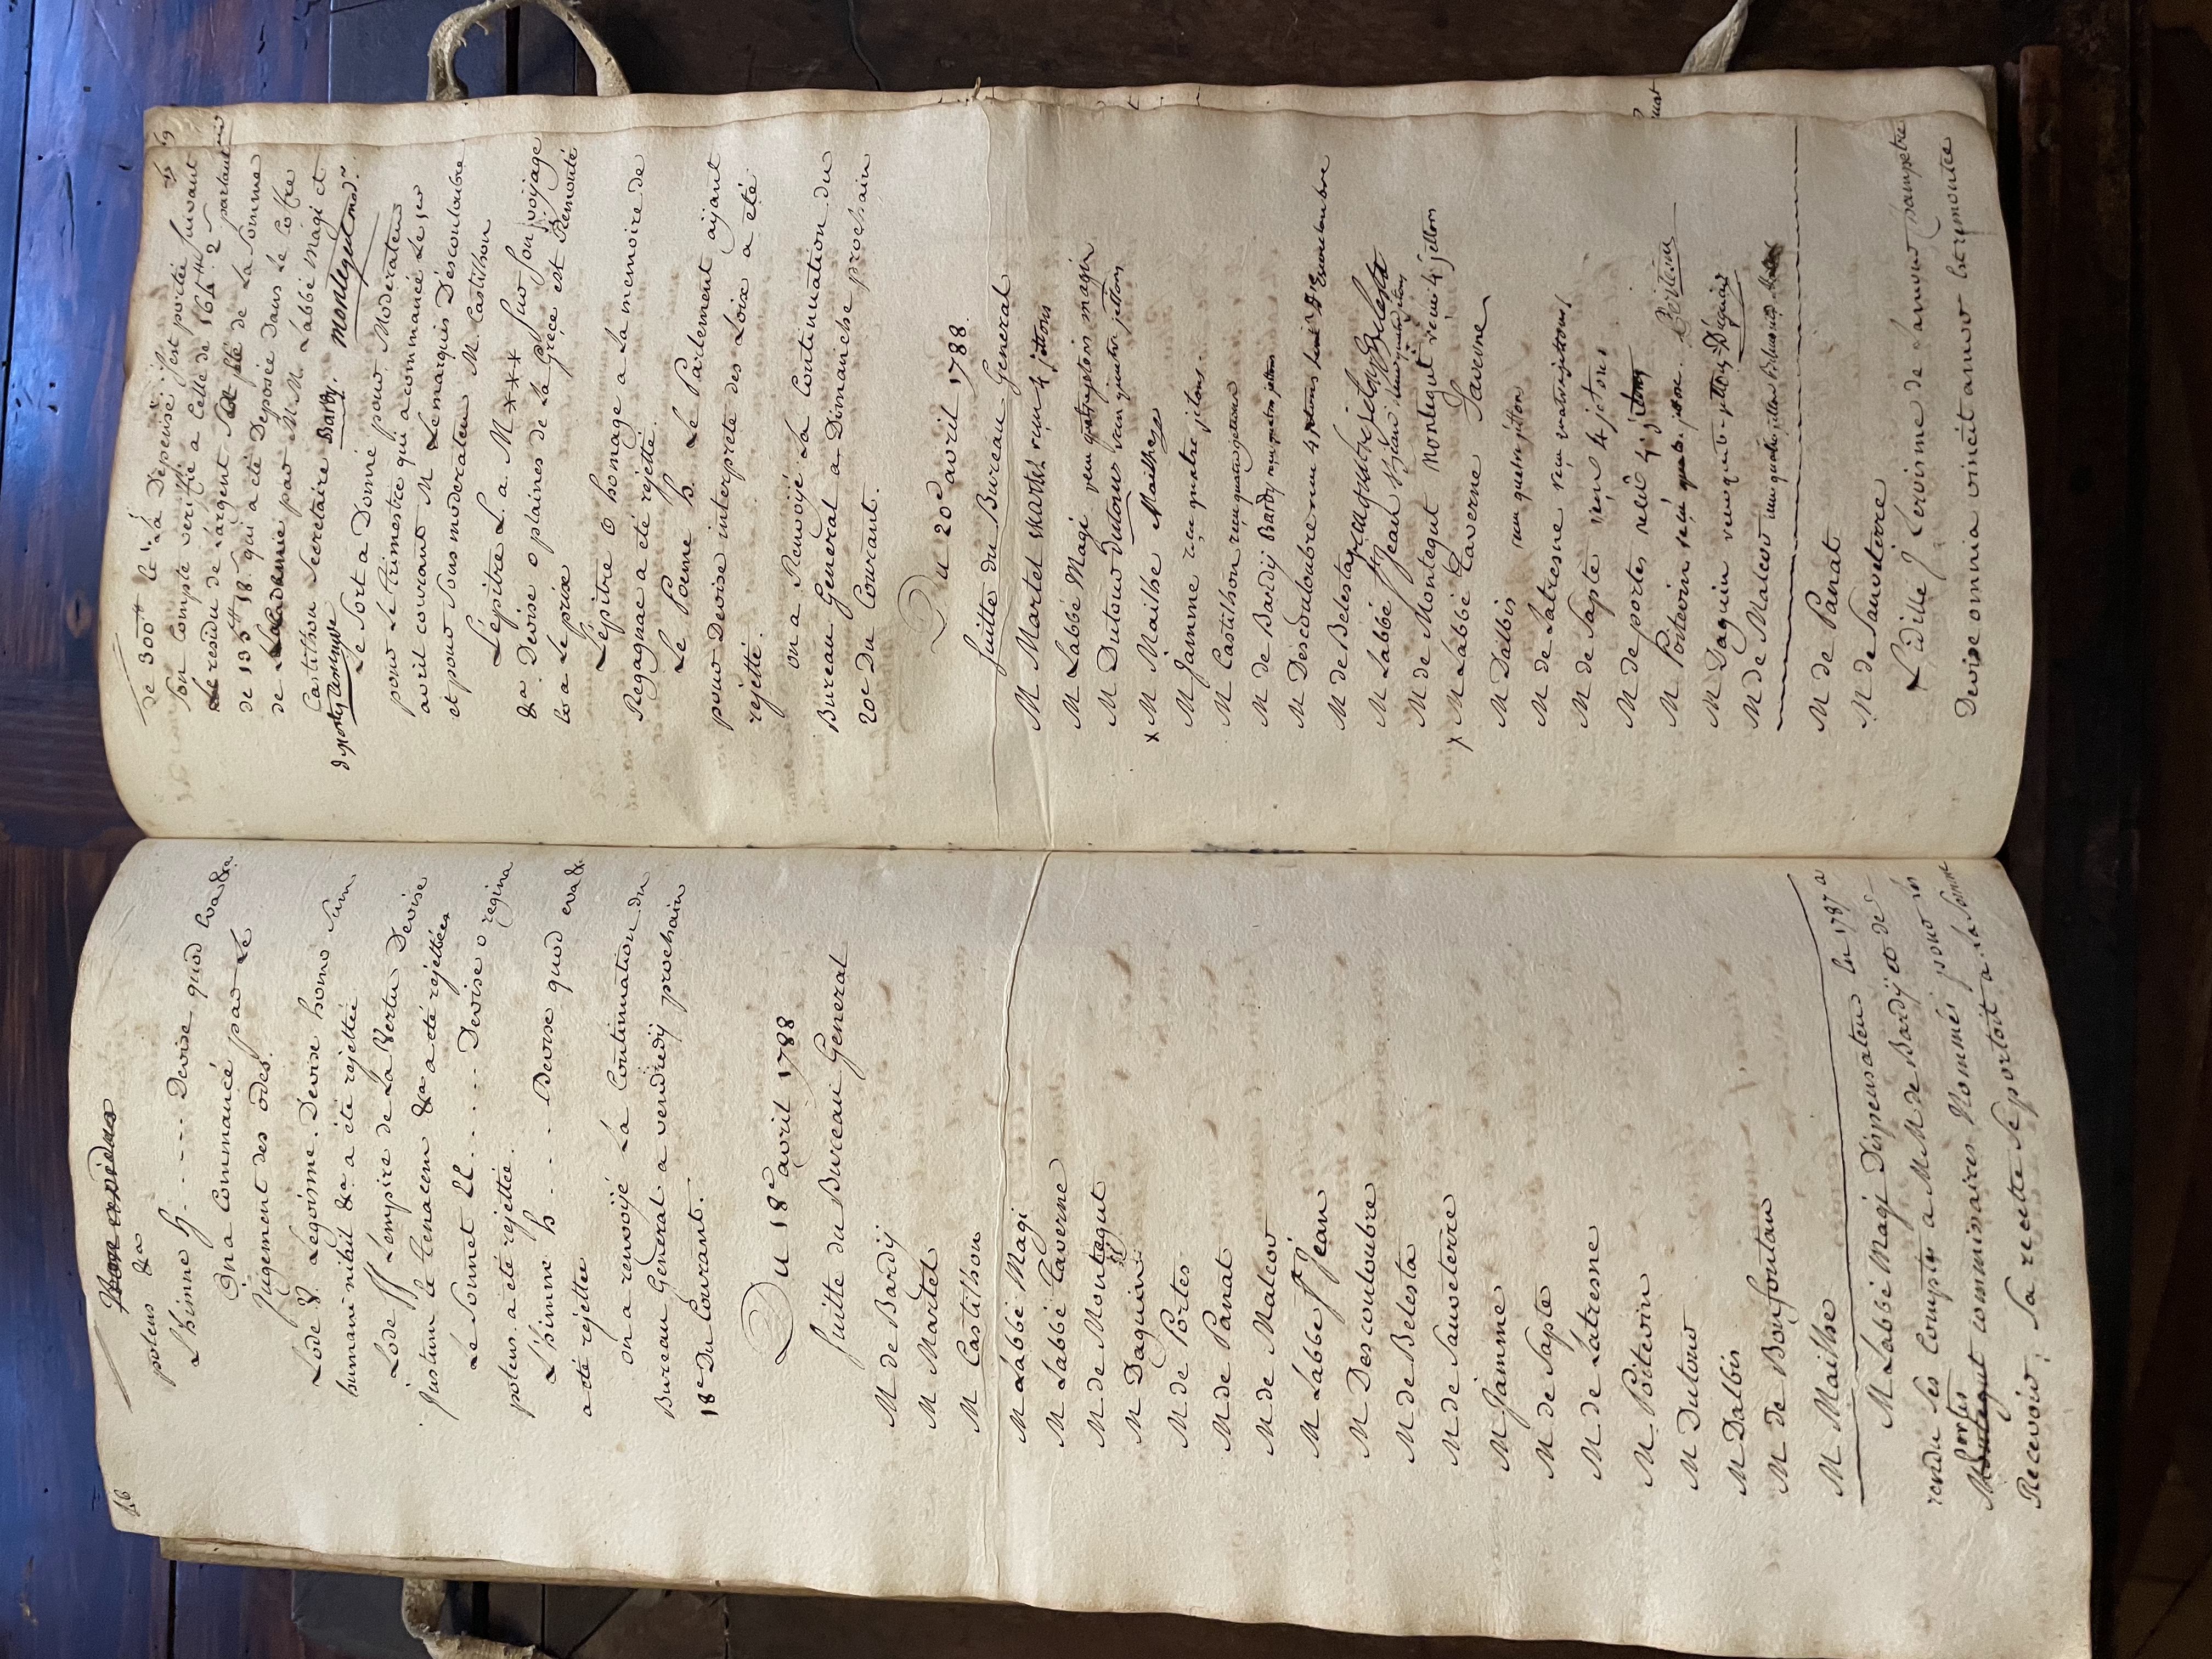 46
potens &a
L'himne h. - - - - Devise quod
On a Commancé par Le
Jugement des odes.
Lode & Légoisme. Devise homo sum
humani nihil &a a été rejettée
Lode ff Lempire de La Vertu Devise
Justum le tenacem &a a été rejettée
Le Sonnet LL . . . . . Devise o regina
potens. a été rejettée.
L'himne h . . . . Devise quod
a été rejettée
on a renvoyé La Continuation du
Bureau General a vendredy prochain
18e Du Courant.
Du 18e avril 1788
Suitte du Bureau General
M de Bardy
M Martel
M Castilhon
M Labbé Magi
M Labbé Taverne
M de Montegut
M Daguin
M de Portes
M de Panat
M de Malcor
M Labbe St Jean
M Descouloubre
M de Belesta
M de Sauveterre
M Jamme
M de Sapte
M de Latresne
M. Poitevin
M Dutour
M Dalbis
M de Bonfontan
M Mailhe
M Labbé Magi Dispensateur en 1787 a
rendu ses Comptes a MM de Bardy et de
Portes
Montegut commissaires Nommés pour les
Recevoir; Sa recette se portoit a la Somme
de 300tt La Depense s'est portée suivant
Son Compte verifié a Celle de 164tt 2s partant
Le residu de Largent de La Somme
de 135tt 18s qui a été Deposée Dans Le Coffre
de Lacademie par MM. Labbé Magi et
Castilhon Secretaire Bardy. montegut modr.
Le Sort a Donné pour Moderateur
pour Le trimestre qui a commancé Le 1er
avril courant M Le marquis Descouloubre
et pour Sousmoderateur M. Castilhon
L'épitre L. a. M *** Sur Son voyage
&a Devise o plaines de la Grece est
a Le prix
L'épitre O homage a La memoire de
Regagnac a été rejetté.
Le Poeme h. Le Parlement ayant
pour Devise interprete des Loix a été
rejetté.
on a Renvoyé La Continuation du
Bureau General a Dimanche prochain
20e Du Courant.
Du 20e avril 1788.
Suitte du Bureau General
M Martel Martel reçu 4 jettons
M Labbé Magi reçu quatre jetons magi
M Dutour Dutour reçu quatre jettons
x M Mailhe Mailhe
M Jamme reçu quatre jetons.
M Castilhon reçu quatre jettons
M de Bardy Bardy reçu quatre jettons
M Descouloubre reçu 4 jettons Descouloubre
M de Belesta reçu quatre jetons Belesta
M Labbé St Jean St jean
M de Montegut Montegut reçu 4 jettons
x M Labbé Taverne Taverne
M Dalbis reçu quatre jettons
M de Latresne reçu quatre jettons
M de Sapte reçu 4 jetons
M de portes reçu 4 jetons
M Poitevin reçu quatre jetons. Poitevin
M Daguin reçu quatre jettons Daguin
M de Malcor reçu quatre jettons
M de Panat
M de Sauveterre
L'idille J Lorisme de L'amour champetre
Devise omnia vincit amor